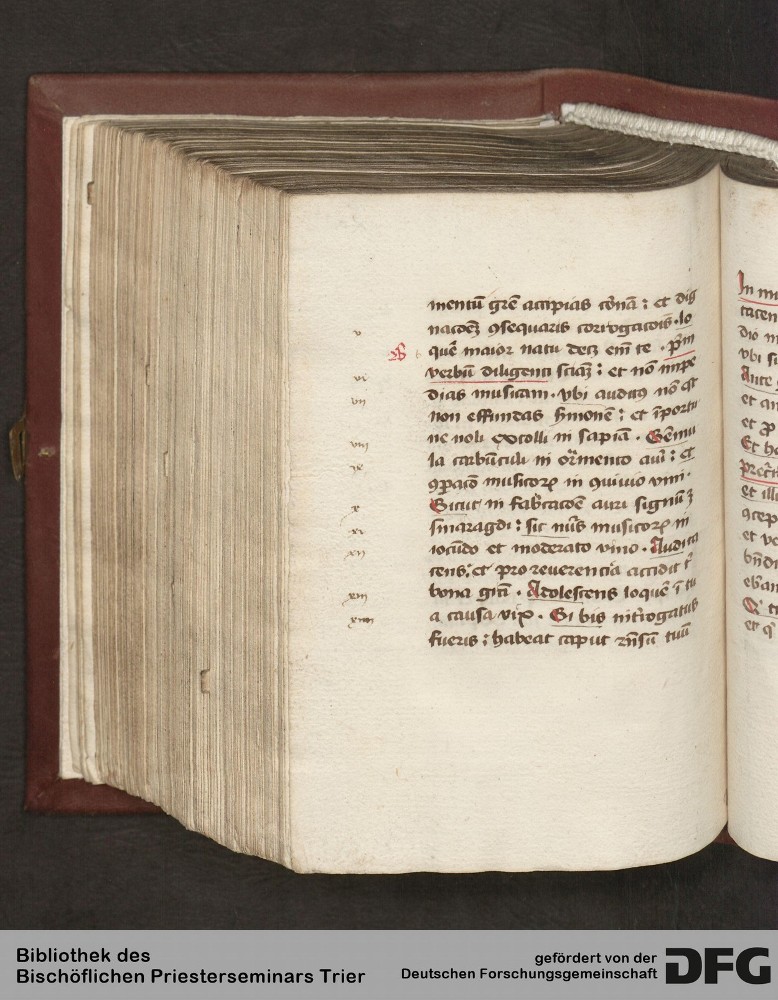 mentū gr̄e accipias corōnā : et dig
nacōeȝ ꝯsequaris corrogacōis . lo
quē maior natu decȝ em̄ te . pm̄
verbū diligenti sciaȝ : et nō impe
dias musicam . vbi auditꝰ nō est
non effundas s̄monē : et īportu
ne noli extolli in sapīa . Gēmu
la carbūculi in or̄mento auri : et
ꝯparacō musicoꝝ in quiuio vini .
Sicut in fabricacōe auri signū ē
smaragdi : sic nūs musicoꝝ in
iocūdo et moderato vino . Audi ta
cens : et pro reuerencia accidit t̄
bona grā . Adolescens loquē ī tu
a causa vix . Si bis int̄rogatus
fueris : habeat caput rn̄sū tuū
v
vi
vii
viii
ix
x
xi
xii
xiii
xiiii
In mi
tacen
dio m
vbi s
Ante
et an
et ꝓ
Et h
et illi
et ve
et q
Bibliothek des
Bischöflichen Priesterseminars Trier
gefördert von der
Deutschen Forschungsgemeinschaft
DFG